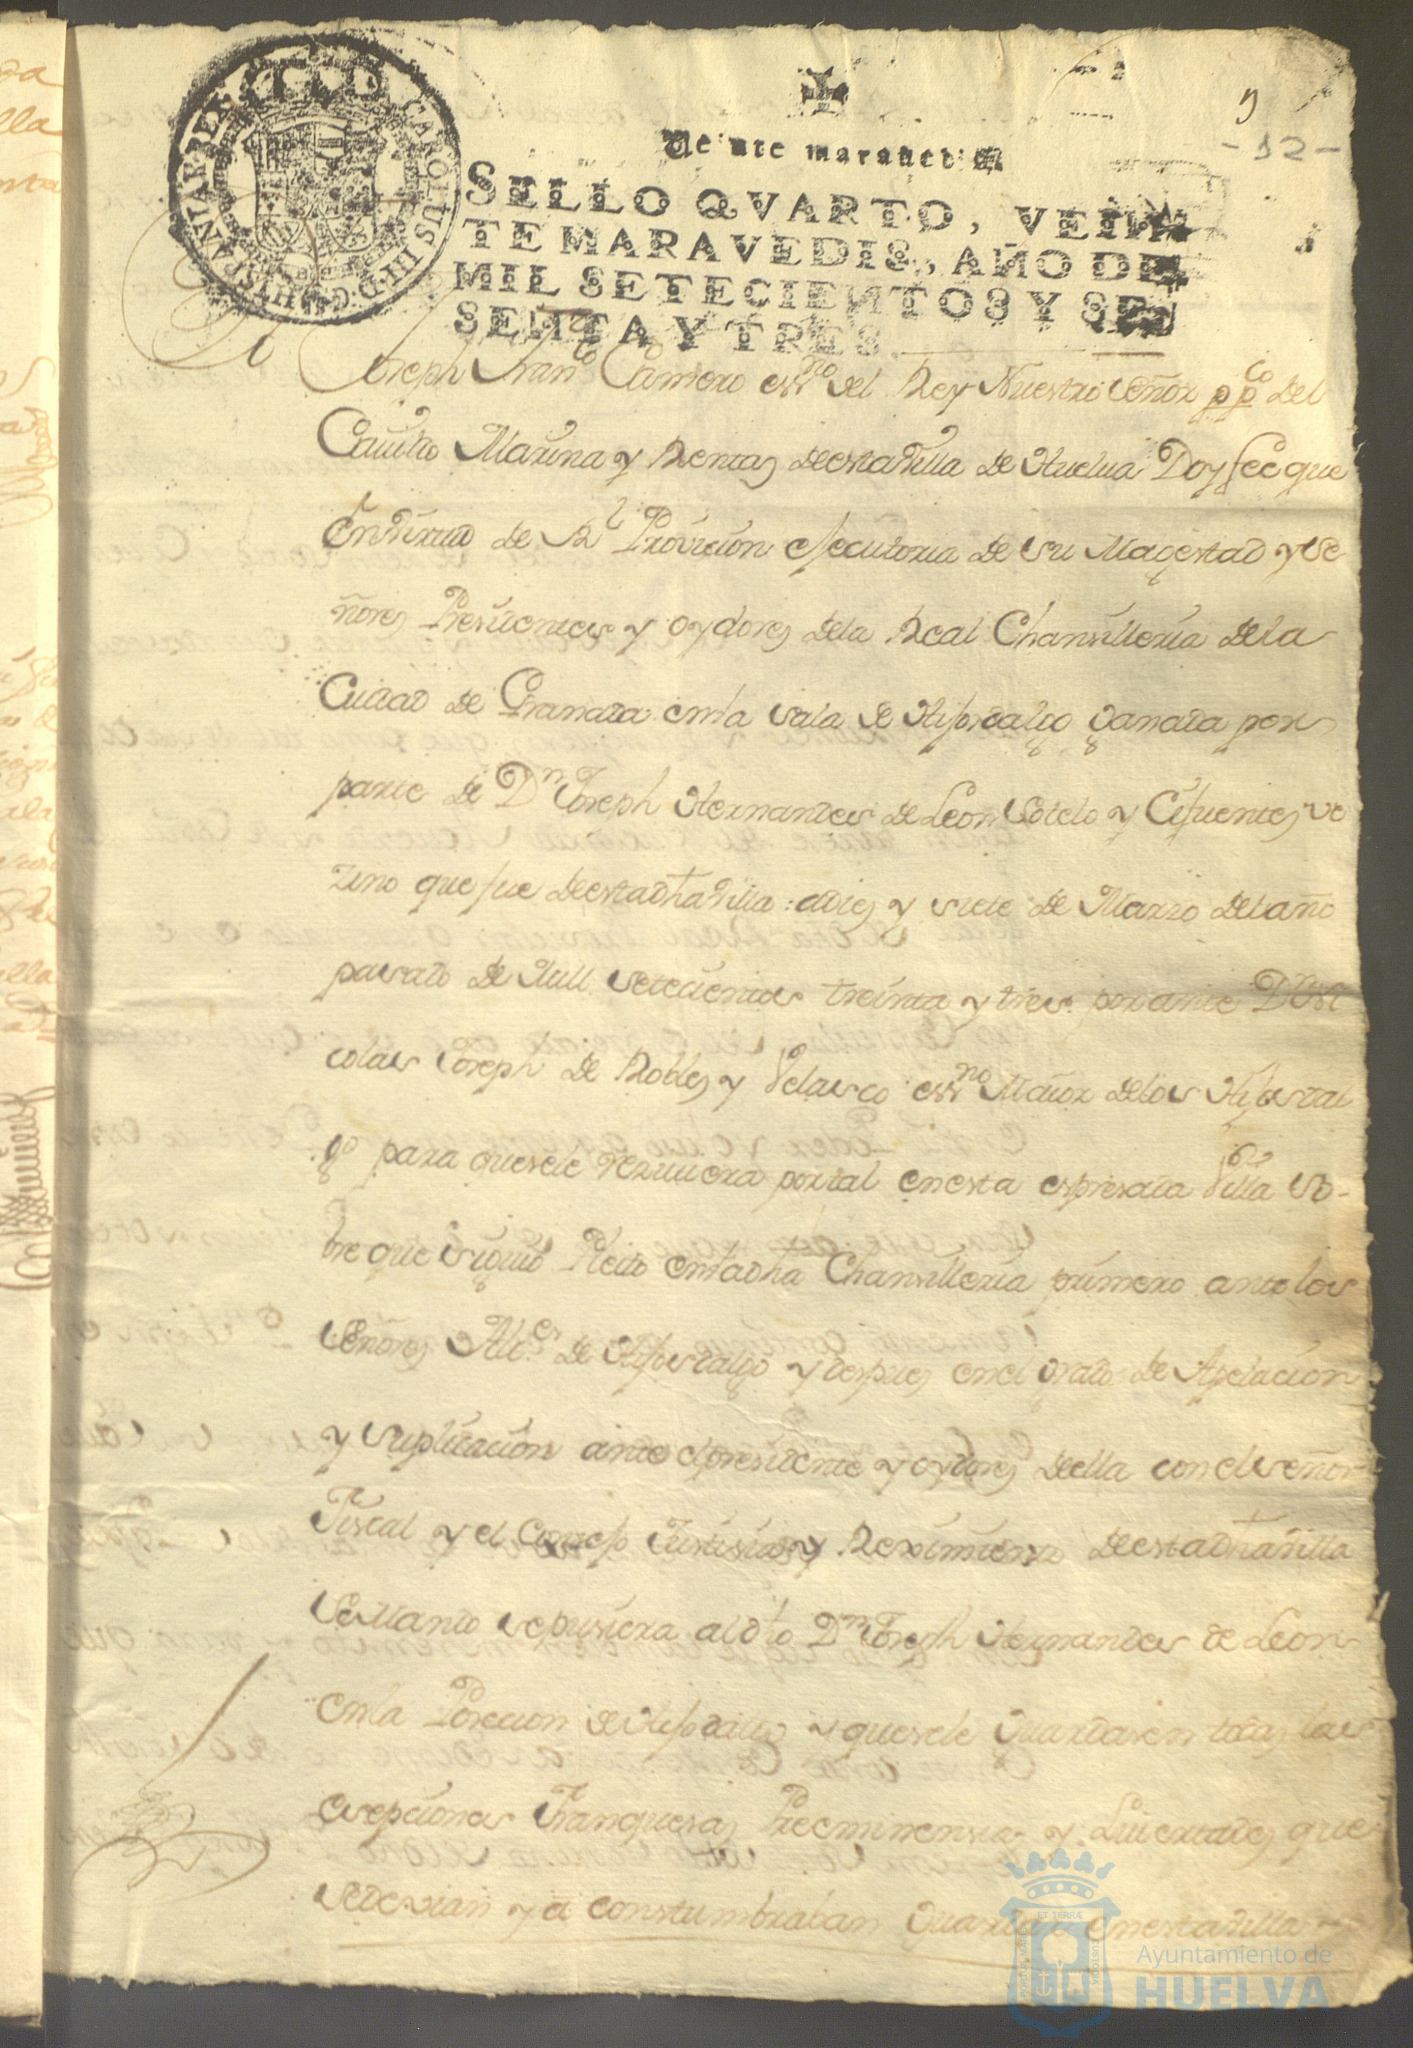 CAROLUS III D.G. HISPANIAR REX
Veinte maravedis
SELLO QVARTO, VEIN
TE MARAVEDIS, AÑO DE
MIL SETECIENTOS Y SE
SENTA Y TRES
9
- 12 -
Joseph Fran.co Camero ess.no del Rey Nuestro Señor pp.co del
Cavildo Marina y Rentas deesta Villa de Huelva Doy fee que
En Virtud de R.l Provicion ejecutoria de su Magestad y Se
ñores Presidentes y oydores dela Real Chansilleria dela
Ciudad de Granada enla sala de Hijosdalgo ganada por
parte de D.n Joseph Hernandes de Leon Sotelo y Cifuentes ve
zino que fue deestadha Villa adies y siete de Marzo delaño
pasado de Mill setecientos treinta y tres por ante D.n Ni
colas Joseph de Robles y Velasco ess.no Maior delos Hijosdal
go para quesele reziviera por tal enesta espresada Villa so-
bre que siguió Pleito enladha Chansilleria primero antelos
Señores Alc.es de Hijosdalgo y despues enel grado de Apelacion
y suplicacion ante elpresidente y oydores deella conelseñor
Fiscal y el Consejo Justisia y Reximiento deestadha Villa
se Mando sepusiera aldho D.n Joseph Hernandes de Leon
enla Posecion de Hijodalgo y quesele Guardasen todas las
esepciones Franquesas Preeminensias y Livertades que
sedevian y aconstumbraban Guardar enesta Villa
ET TERRAE
Ayuntamiento de
HUELVA